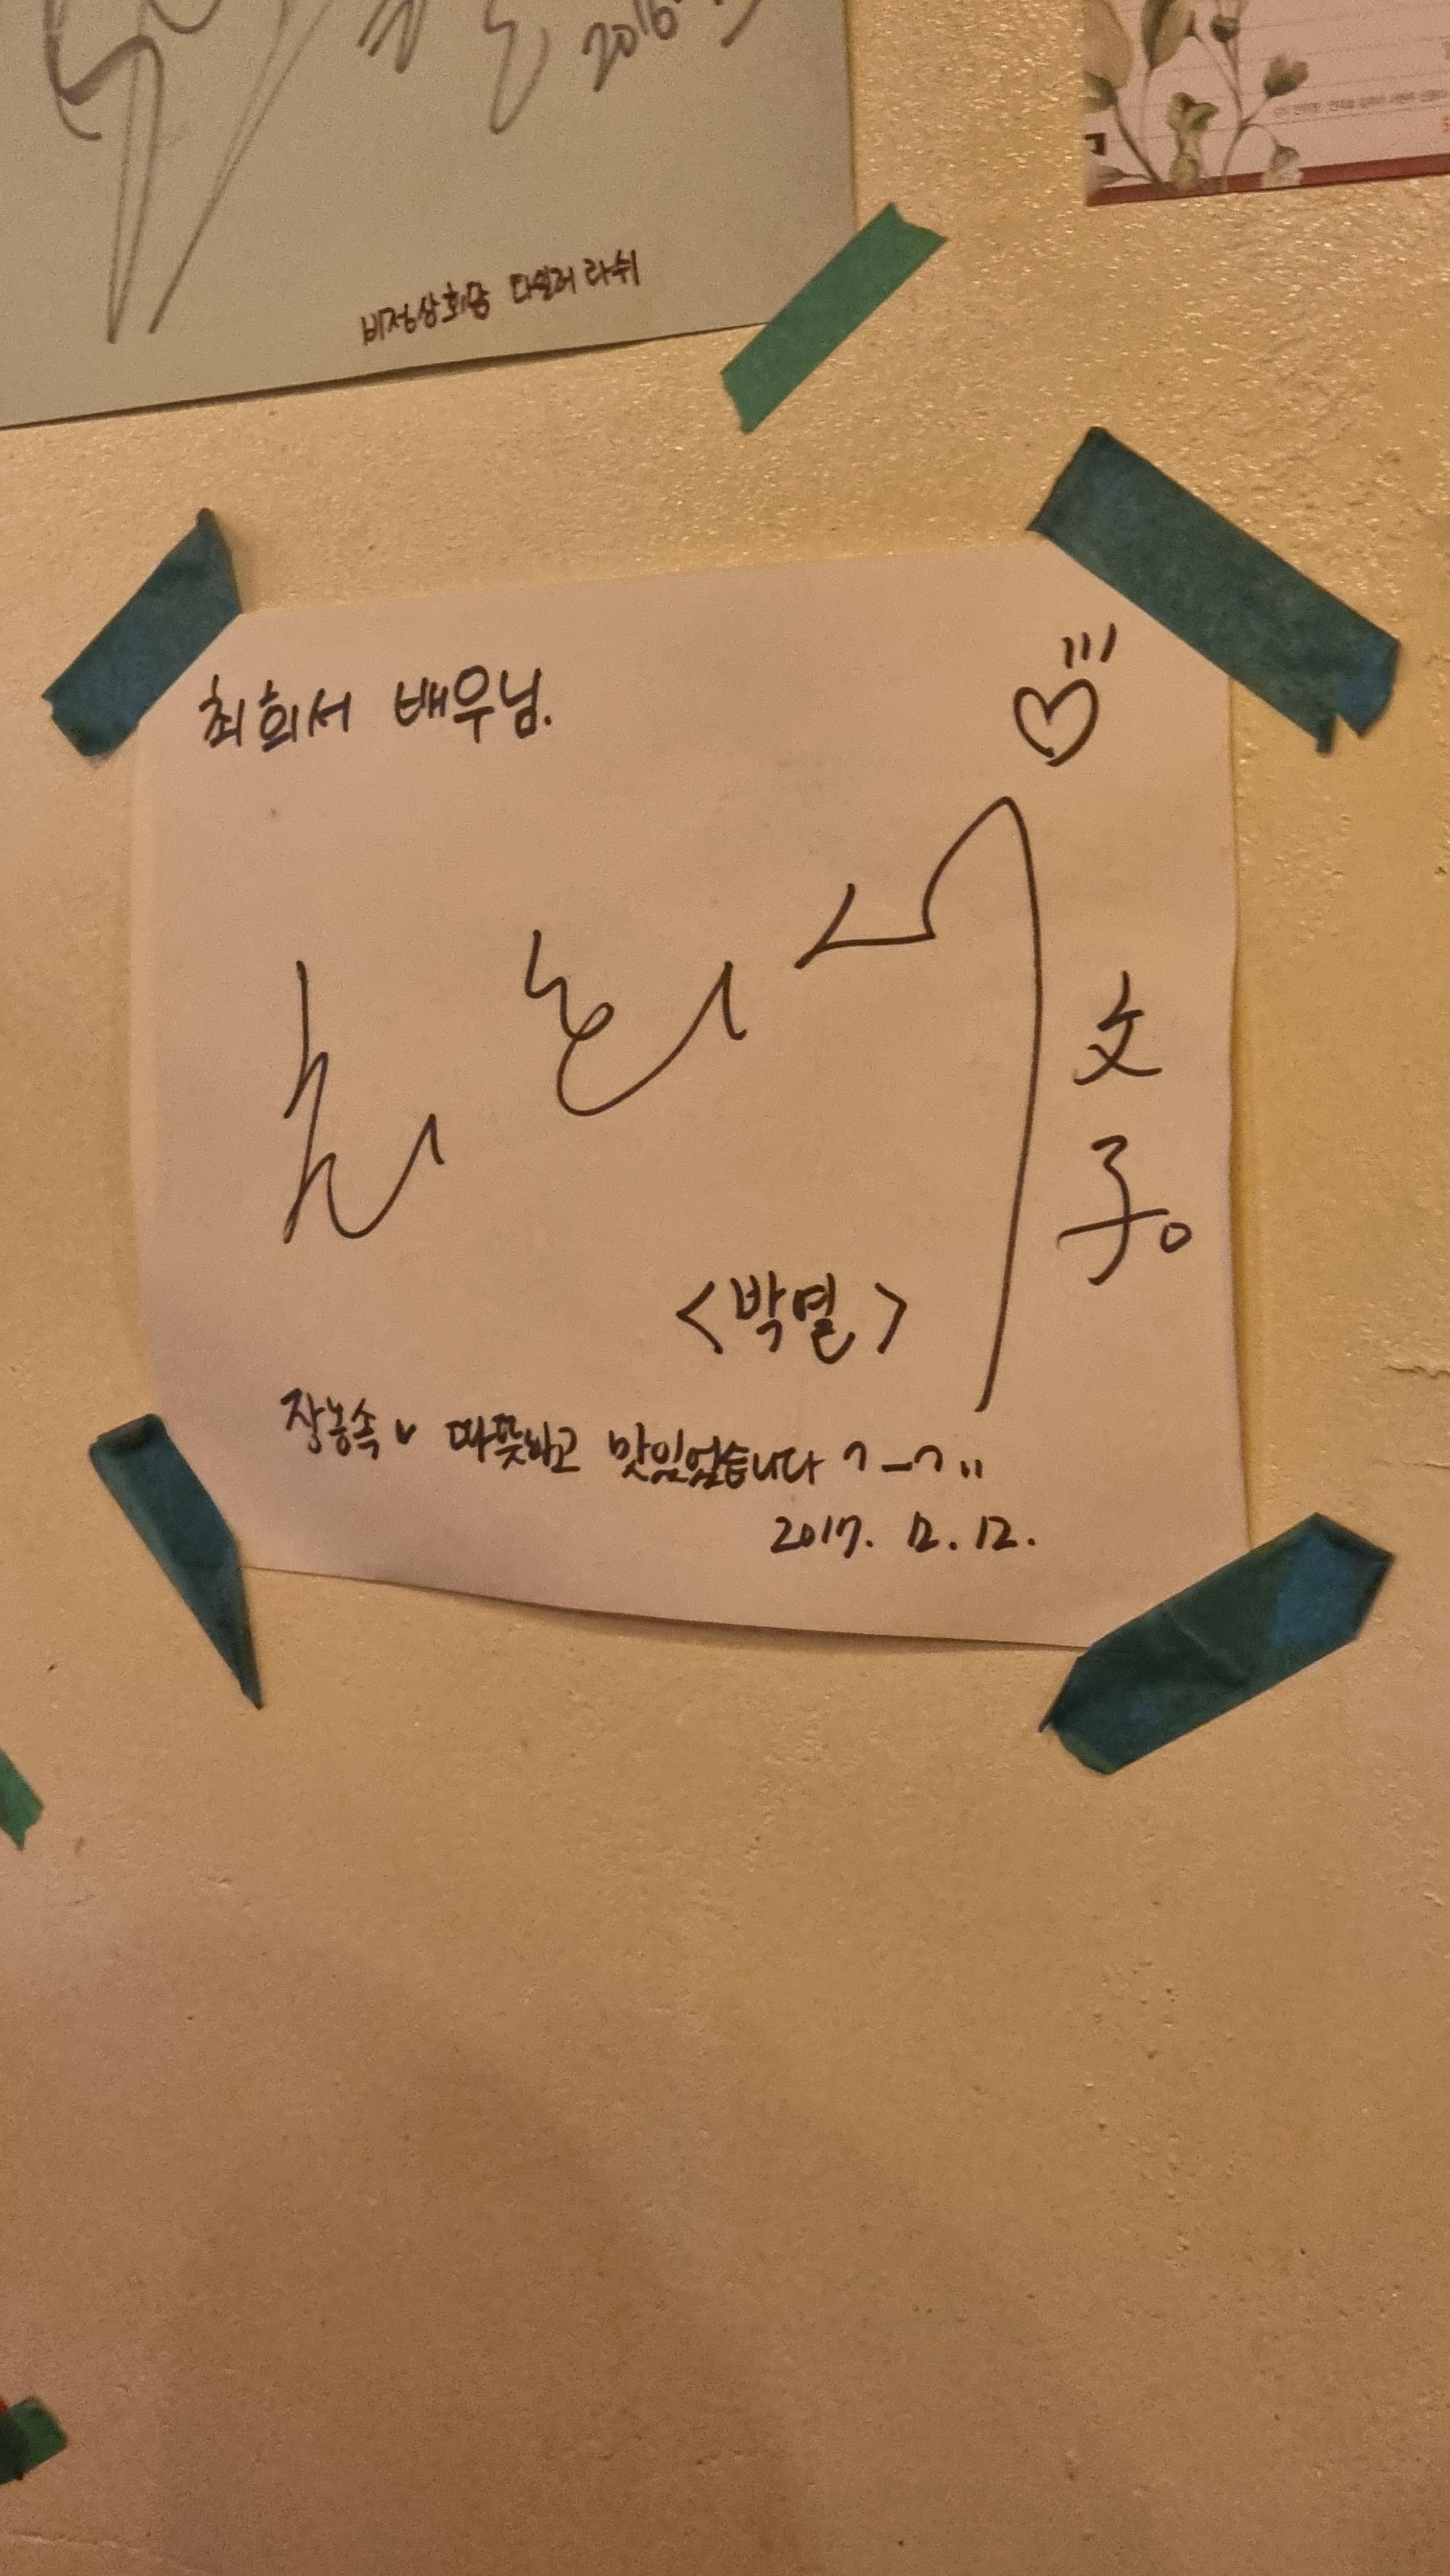 2016
비정상회담 타일러 라쉬
최희서 배우님.
최희서
文子。
<박열>
장농속 따뜻하고 맛있었습니다 ^-^"
2017. 12. 12.